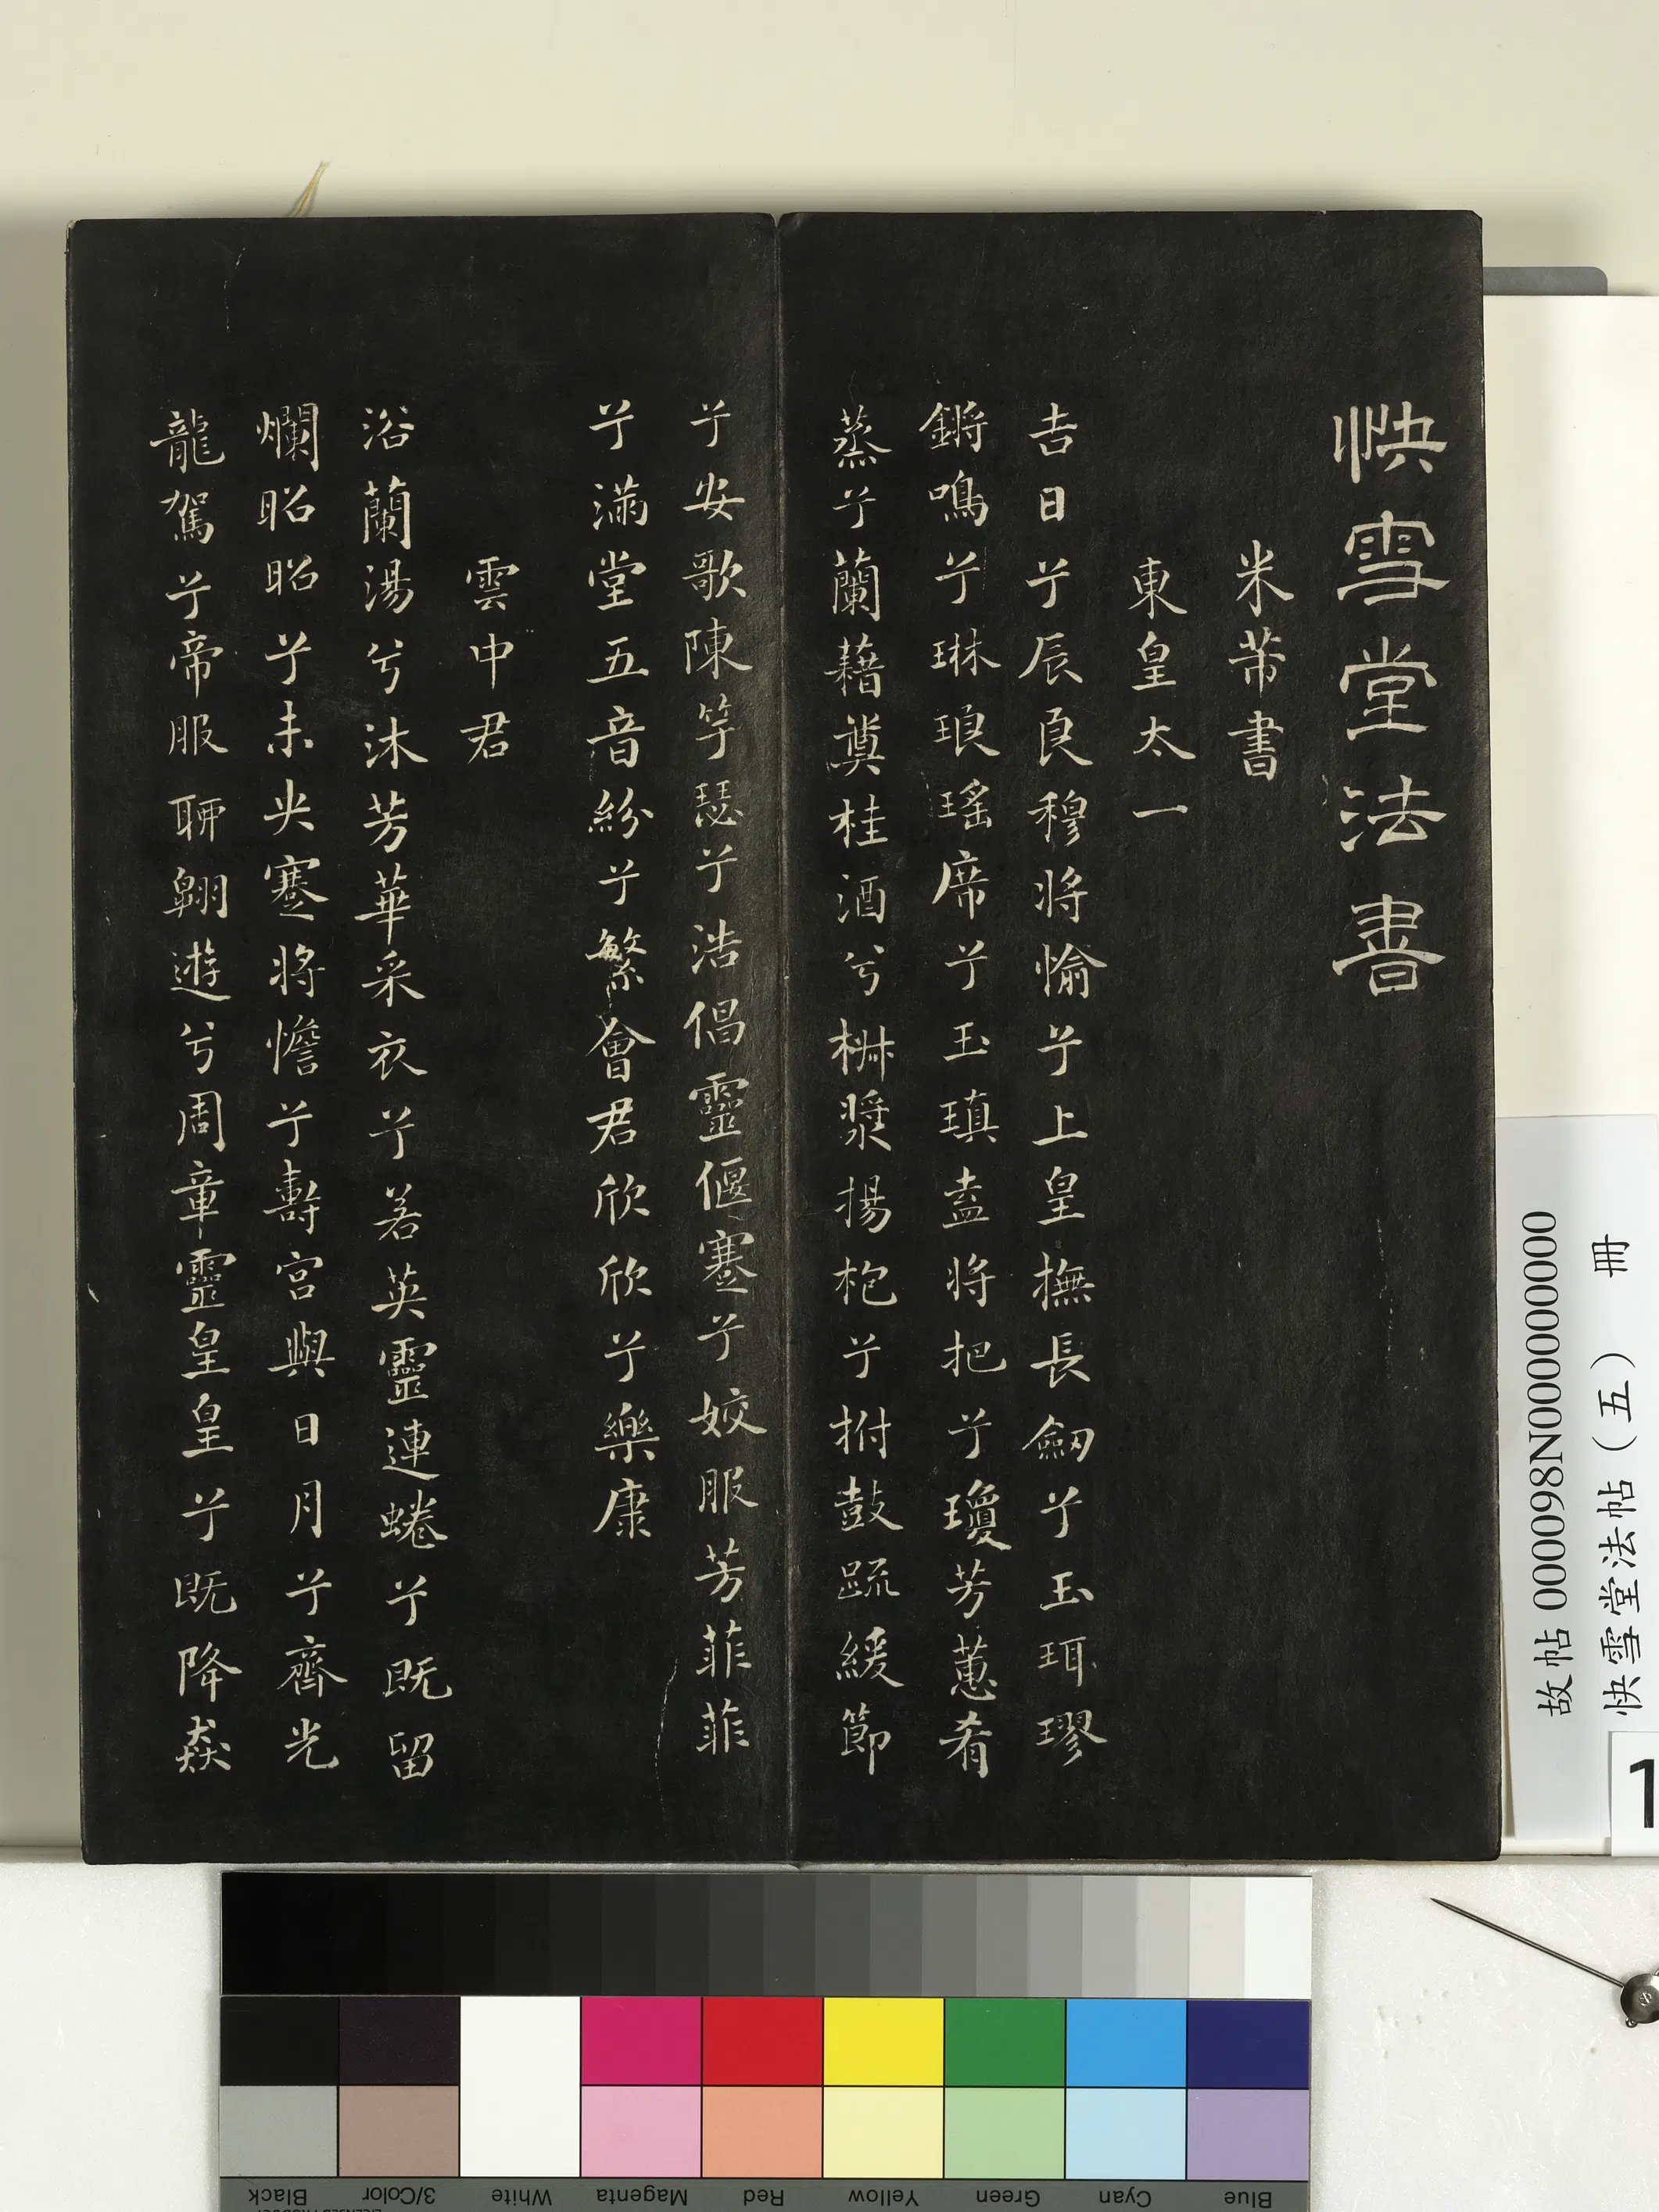 快雪堂法書
米芾書
東皇太一
吉日兮辰良穆將愉兮上皇撫長劔兮玉珥璆
鏘鳴兮琳琅瑤席兮玉瑱盍將把兮瓊芳蕙肴
蒸兮蘭藉奠桂酒兮椒漿揚枹兮拊鼓疏緩節
兮安歌陳竽瑟兮浩倡靈偃蹇兮姣服芳菲菲
兮滿堂五音紛兮繁會君欣欣兮樂康
雲中君
浴蘭湯兮沐芳華采衣兮若英靈連蜷兮既留
爛昭昭兮未央蹇將憺兮壽宮與日月兮齊光
龍駕兮帝服聊翱遊兮周章靈皇皇兮既降猋
故帖 000098N000000000
快雪堂法帖（五） 冊
1
Black
3/Color
White
Magenta
Red
Yellow
Green
Cyan
Blue